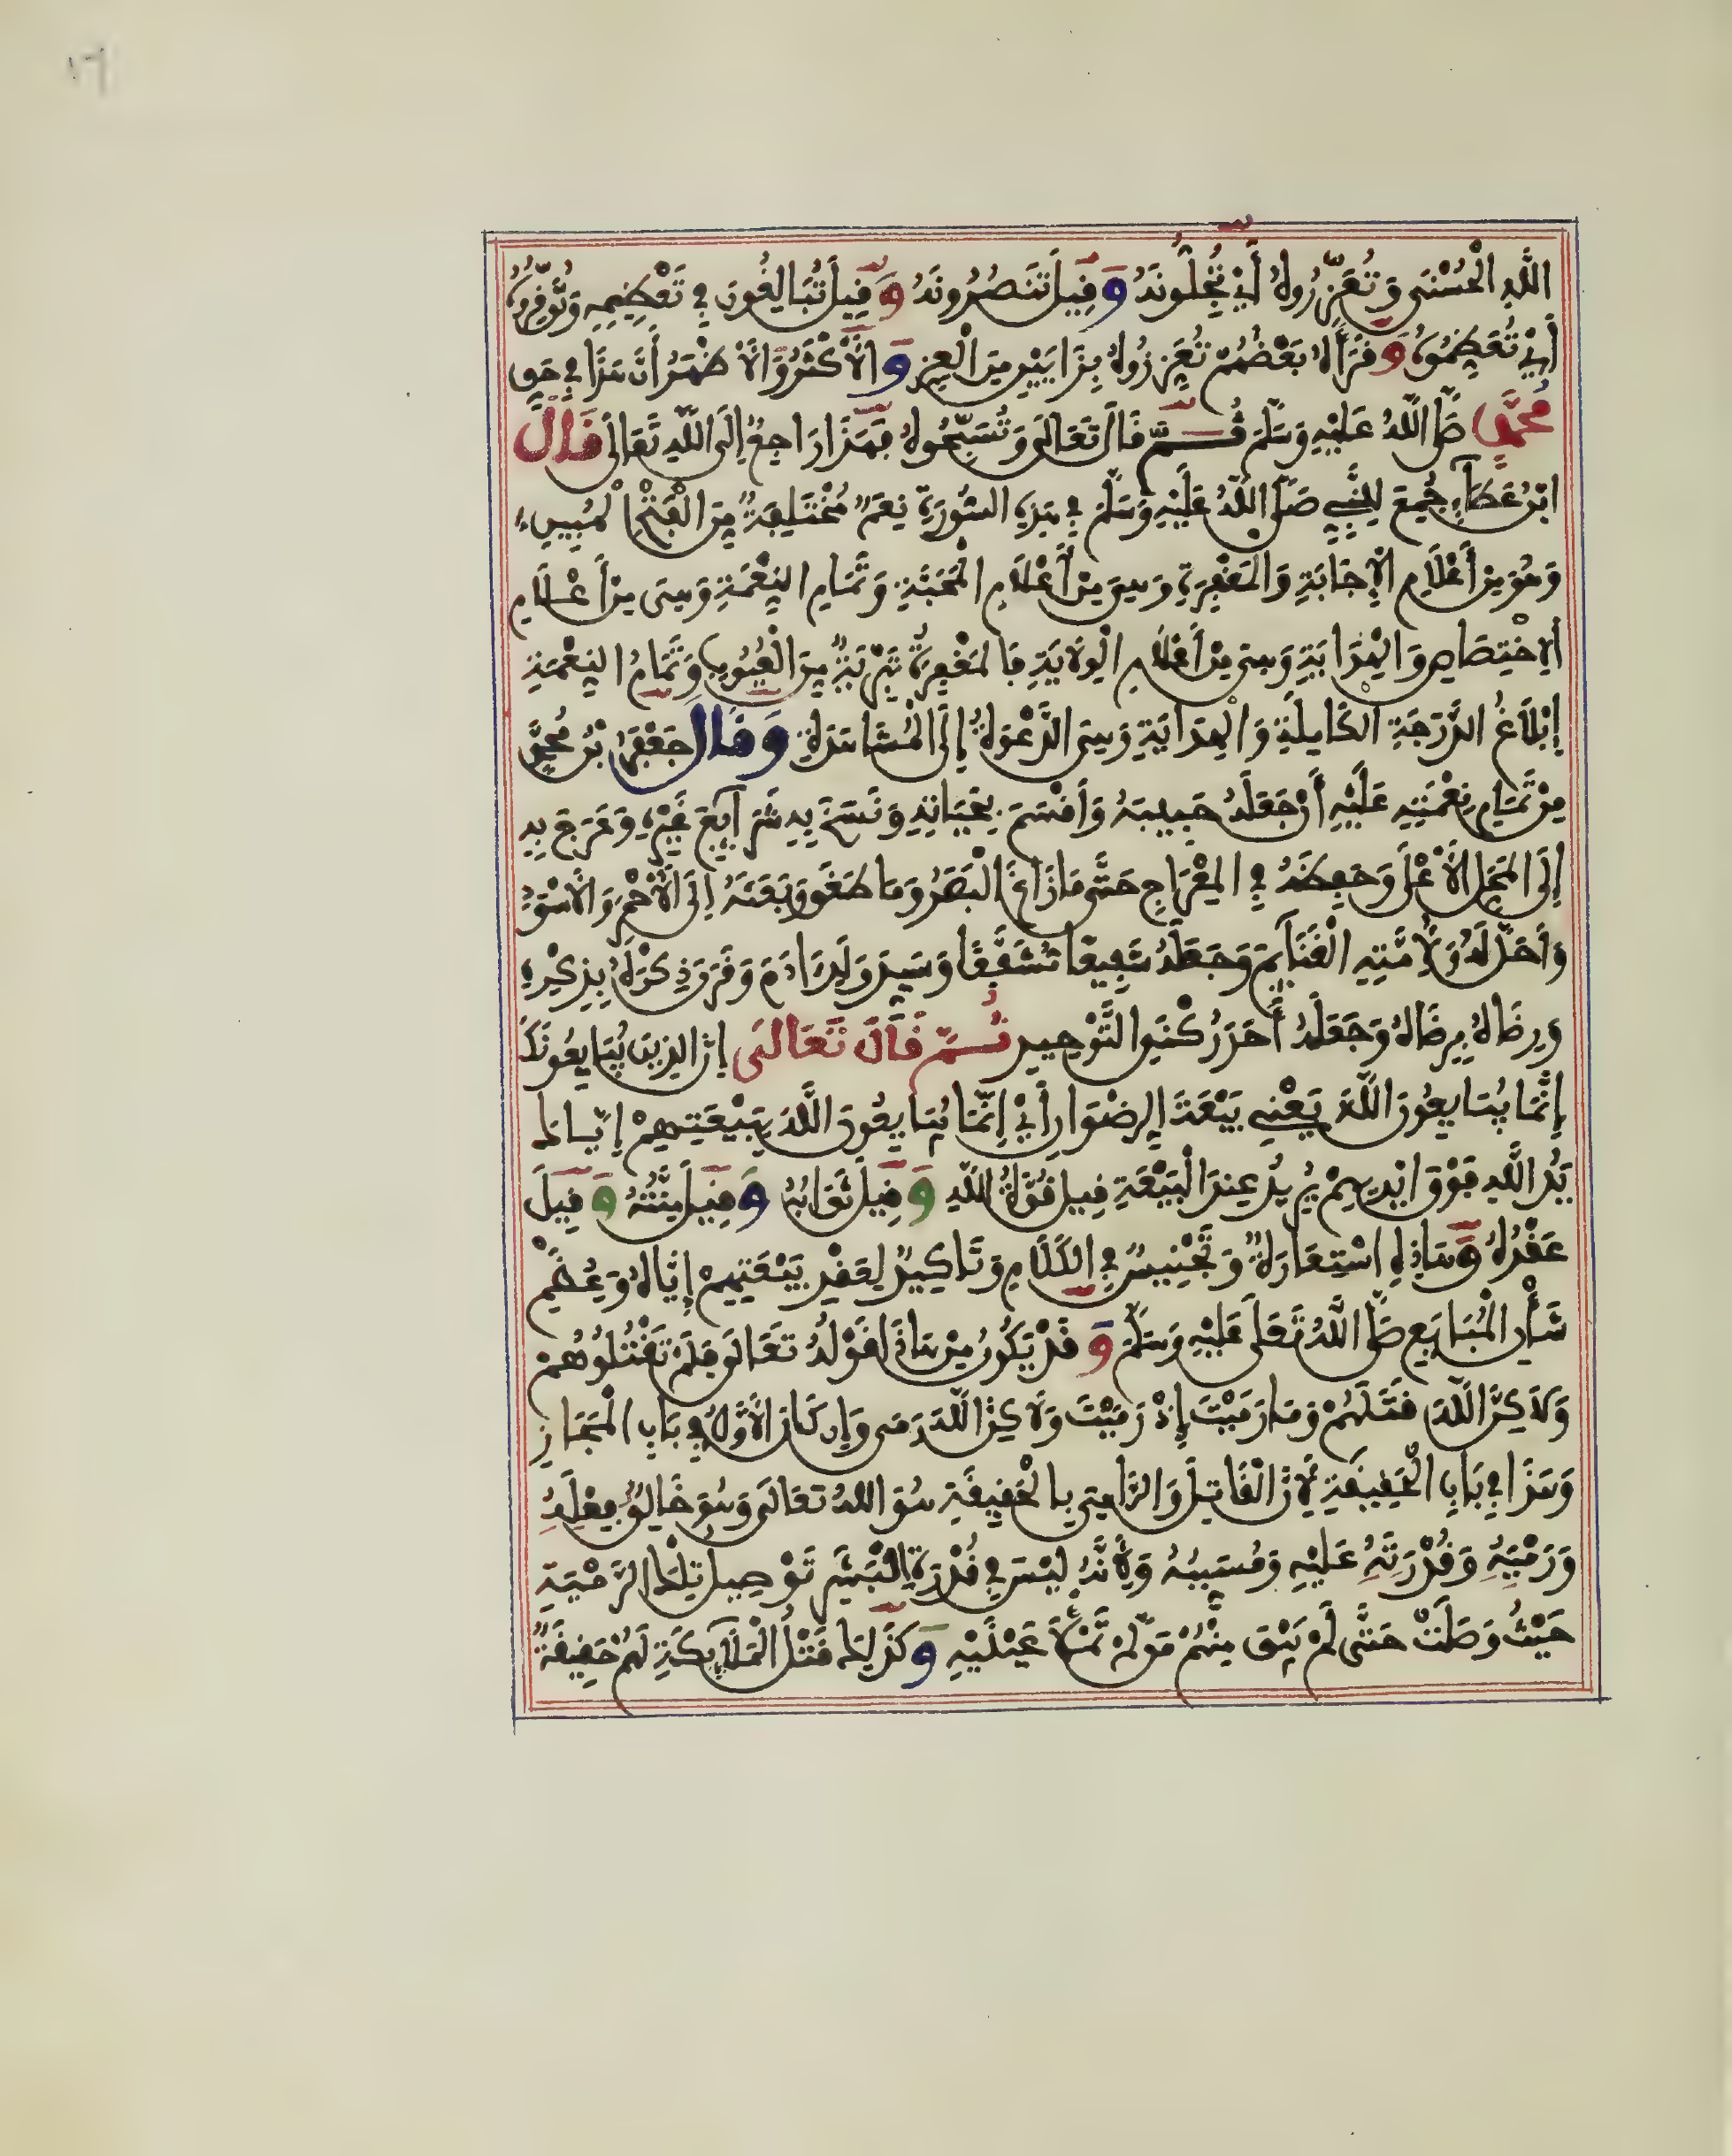 ١٦
اللَّهِ الْحُسْنَى وَتُعَزِّرُوهُ أَيْ تُجِلُّونَهُ وَقِيلَ تَنْصُرُونَهُ وَقِيلَ تُبَالِغُونَ فِي تَعْظِيمِهِ وَتُوَقِّرُوهُ
أَيْ تُعَظِّمُوهُ وَقَرَأَهُ بَعْضُهُمْ تُعَزِّزُوهُ بِزَايَيْنِ مِنَ الْعِزِّ وَالْأَكْثَرُ وَالْأَظْهَرُ أَنَّ هَذَا فِي حَقِّ
مُحَمَّدٍ صَلَّى اللَّهُ عَلَيْهِ وَسَلَّمَ ثُمَّ قَالَ تَعَالَى وَتُسَبِّحُوهُ فَهَذَا رَاجِعٌ إِلَى اللَّهِ تَعَالَى قَالَ
ابْنُ عَطَاءٍ جُمِعَ لِلنَّبِيِّ صَلَّى اللَّهُ عَلَيْهِ وَسَلَّمَ فِي هَذِهِ السُّورَةِ نِعَمٌ مُخْتَلِفَةٌ مِنَ الْفَتْحِ الْمُبِينِ
وَهُوَ مِنْ أَعْلَامِ الْإِجَابَةِ وَالْمَغْفِرَةِ وَهِيَ مِنْ أَعْلَامِ الْمَحَبَّةِ وَتَمَامِ النِّعْمَةِ وَهِيَ مِنْ أَعْلَامِ
الِاخْتِصَاصِ وَالْهِدَايَةِ وَهِيَ مِنْ أَعْلَامِ الْوِلَايَةِ فَالْمَغْفِرَةُ تَبْرِئَةٌ مِنَ الْعُيُوبِ وَتَمَامُ النِّعْمَةِ
إِبْلَاغُ الدَّرَجَةِ الْكَامِلَةِ وَالْهِدَايَةِ وَهِيَ الدَّعْوَةُ إِلَى الْمُشَاهَدَةِ وَقَالَ جَعْفَرُ بْنُ مُحَمَّدٍ
مِنْ تَمَامِ نِعْمَتِهِ عَلَيْهِ أَنْ جَعَلَهُ حَبِيبَهُ وَأَقْسَمَ بِحَيَاتِهِ وَنَسَخَ بِهِ شَرَائِعَ غَيْرِهِ وَعَرَجَ بِهِ
إِلَى الْمَحَلِّ الْأَعْلَى وَحَفِظَهُ فِي الْمِعْرَاجِ حَتَّى مَا زَاغَ الْبَصَرُ وَمَا طَغَى وَبَعَثَهُ إِلَى الْأَحْمَرِ وَالْأَسْوَدِ
وَأَحَلَّ لَهُ وَلِأُمَّتِهِ الْغَنَائِمَ وَجَعَلَهُ شَفِيعًا مُشَفَّعًا وَسَيِّدَ وَلَدِ آدَمَ وَقَرَنَ ذِكْرَهُ بِذِكْرِهِ
وَرِضَاهُ بِرِضَاهُ وَجَعَلَهُ أَحَدَ رُكْنَيِ التَّوْحِيدِ ثُمَّ قَالَ تَعَالَى إِنَّ الَّذِينَ يُبَايِعُونَكَ
إِنَّمَا يُبَايِعُونَ اللَّهَ يَعْنِي بَيْعَةَ الرِّضْوَانِ أَيْ إِنَّمَا يُبَايِعُونَ اللَّهَ بِبَيْعَتِهِمْ إِيَّاكَ
يَدُ اللَّهِ فَوْقَ أَيْدِيهِمْ يُرِيدُ عِنْدَ الْبَيْعَةِ قِيلَ قُوَّةُ اللَّهِ وَقِيلَ ثَوَابُهُ وَقِيلَ مِنَّتُهُ وَقِيلَ
عَقْدُهُ وَهَاذِهِ اسْتِعَارَةٌ وَتَجْنِيسٌ فِي الْكَلَامِ وَتَأْكِيدٌ لِعَقْدِ بَيْعَتِهِمْ إِيَّاهُ وَعِظَمُ
شَأْنِ الْمُبَايَعِ صَلَّى اللَّهُ تَعَلَى عَلَيْهِ وَسَلَّمَ وَقَدْ يَكُونُ مِنْ هَاذَا قَوْلُهُ تَعَالَى فَلَمْ تَقْتُلُوهُمْ
وَلَاكِنَّ اللَّهَ قَتَلَهُمْ وَمَا رَمَيْتَ إِذْ رَمَيْتَ وَلَاكِنَّ اللَّهَ رَمَى وَإِنْ كَانَ الْأَوَّلُ فِي بَابِ الْمَجَازِ
وَهَذَا فِي بَابِ الْحَقِيقَةِ لِأَنَّ الْقَاتِلَ وَالرَّامِيَ بِالْحَقِيقَةِ هُوَ اللَّهُ تَعَالَى وَهُوَ خَالِقُ فِعْلِهِ
وَرَمْيِهِ وَقُدْرَتِهِ عَلَيْهِ وَمُسَبِّبُهُ وَلِأَنَّهُ لَيْسَ فِي قُدْرَةِ الْبَشَرِ تَوْصِيلُ تِلْكَ الرَّمْيَةِ
حَيْثُ وَصَلَتْ حَتَّى لَمْ يَبْقَ مِنْهُمْ مَنْ لَمْ تَمْلَأْ عَيْنَيْهِ وَكَذَلِكَ قَتْلُ الْمَلَائِكَةِ لَهُمْ حَقِيقَةٌ